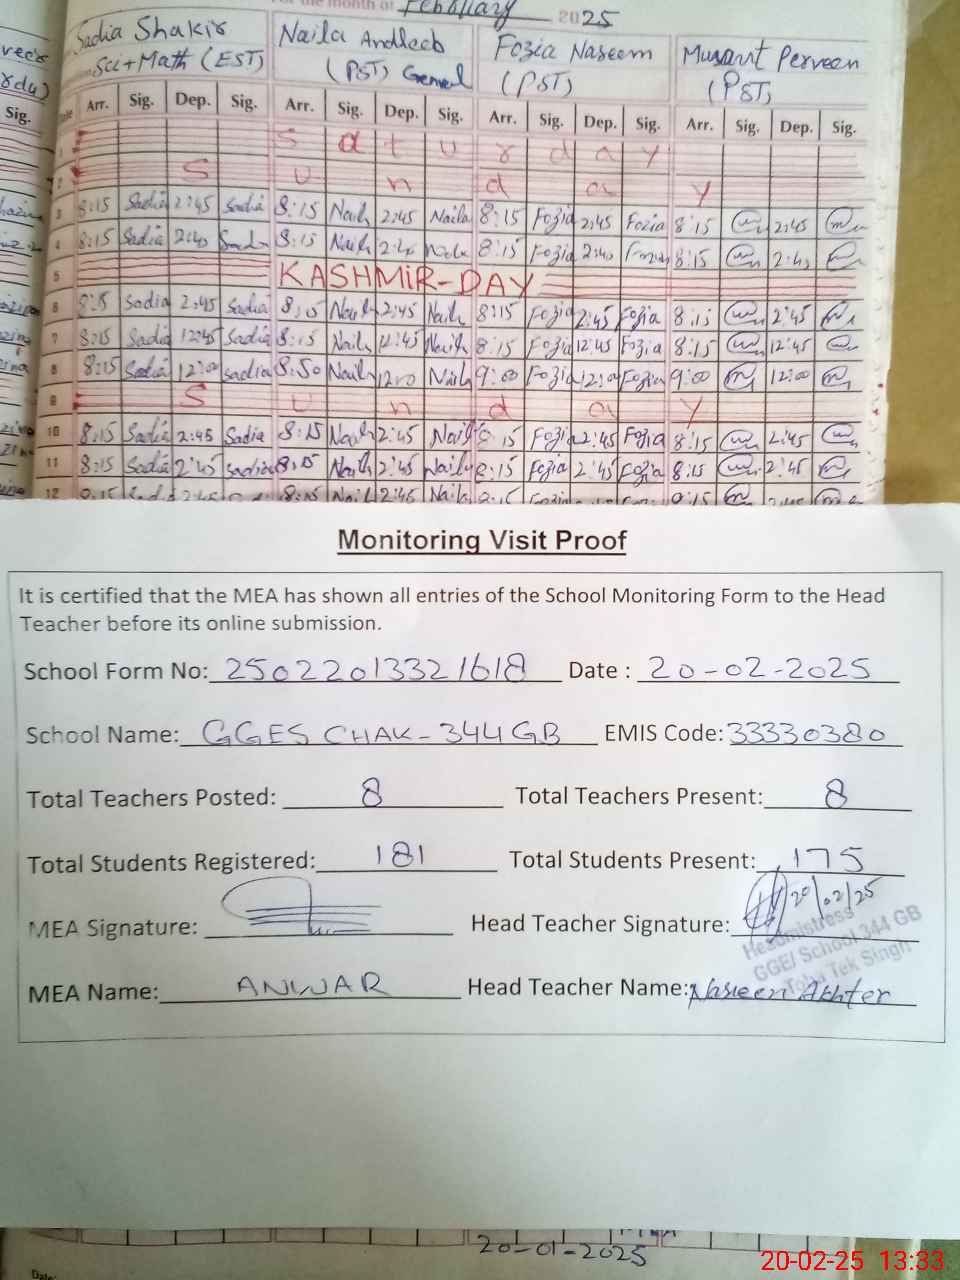 For the month of February 2025
Sadia Shakir Naila Andleeb Fozia Naseem Musarut Perveen
Sci+Math (EST) (PST) General (PST) (PST)
Sig. Arr. Sig. Dep. Sig. Arr. Sig. Dep. Sig. Arr. Sig. Dep. Sig. Arr. Sig. Dep. Sig.
1 S a t u r d a y
2 S u n d a y
3 8:15 Sadia 2:45 Sadia 8:15 Naila 2:45 Naila 8:15 Fozia 2:45 Fozia 8:15 2:45
4 8:15 Sadia 2:40 8:15 Naila 2:40 Naila 8:15 Fozia 2:40 Fozia 8:15 2:40
5 KASHMIR-DAY
6 8:15 Sadia 2:45 Sadia 8:15 Naila 2:45 Naila 8:15 Fozia 2:45 Fozia 8:15 2:45
7 8:15 Sadia 12:45 Sadia 8:15 Naila 12:45 Naila 8:15 Fozia 12:45 Fozia 8:15 12:45
8 8:15 Sadia 12:00 Sadia 8:50 Naila 12:00 Naila 9:00 Fozia 12:00 Fozia 9:00 12:00
9 S u n d a y
10 8:15 Sadia 2:45 Sadia 8:15 Naila 2:45 Naila 8:15 Fozia 2:45 Fozia 8:15 2:45
11 8:15 Sadia 2:45 Sadia 8:15 Naila 2:45 Naila 8:15 Fozia 2:45 Fozia 8:15 2:45
12 8:15 2:45 8:15 Naila 2:45 Naila
Monitoring Visit Proof
It is certified that the MEA has shown all entries of the School Monitoring Form to the Head
Teacher before its online submission.
School Form No: 25022013321618 Date : 20-02-2025
School Name: GGES CHAK-344GB EMIS Code: 33330380
Total Teachers Posted: 8 Total Teachers Present: 8
Total Students Registered: 181 Total Students Present: 175
MEA Signature: Head Teacher Signature: 20/02/25
Headmistress
GGE/ School 344 GB
Toba Tek Singh
MEA Name: ANWAR Head Teacher Name: Naseen Akhter
20-01-2025
Date:
20-02-25 13:33